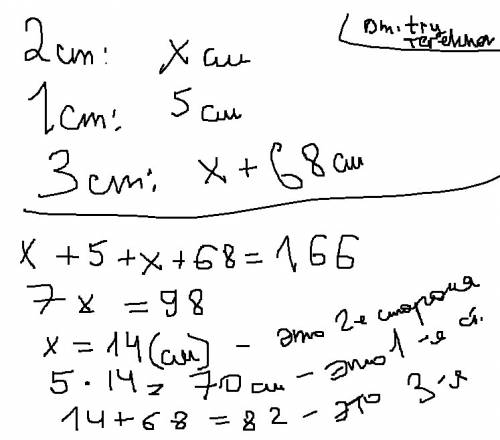 Dmitry
2 ст: x см
1 ст: 5 см
3 ст: x + 68 см
x + 5 + x + 68 = 166
7x = 98
x = 14 (см) - это 2-я сторона
5 · 14 = 70 см - это 1-я ст.
14 + 68 = 82 - это 3-я